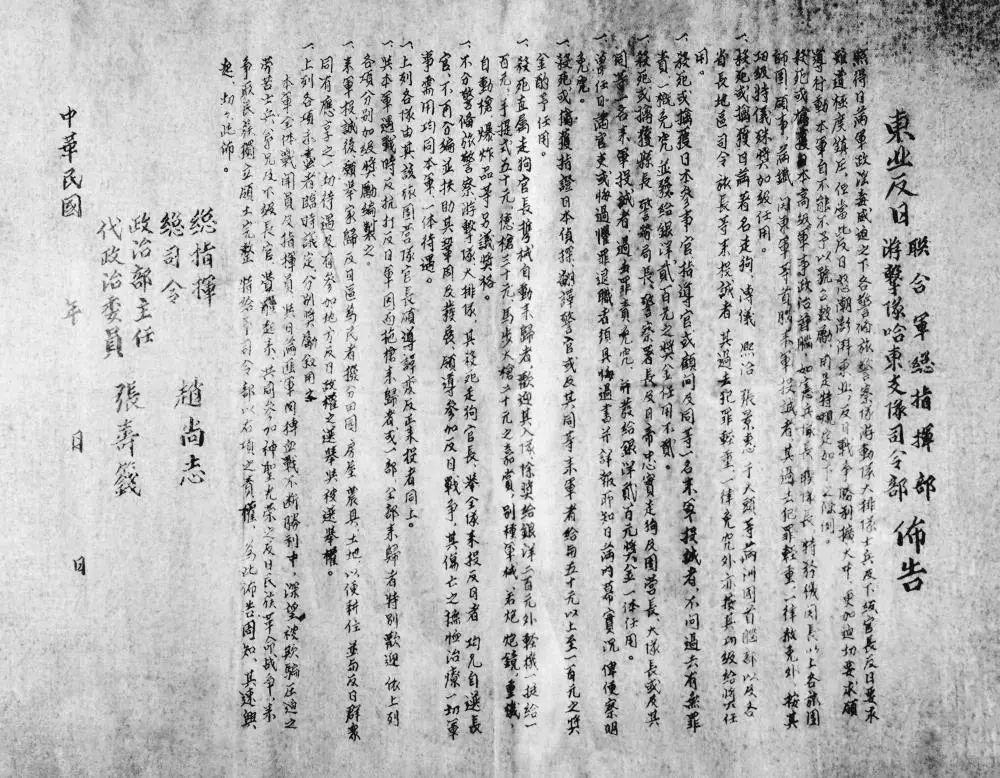 東北反日聯合軍總指揮部
游擊隊哈東支隊司令部佈告
照得日滿軍政淫毒威迫之下各警備旅警察隊游動隊大排隊士兵及下級官長反日要求
雖遭極度鎮壓但當此反日怒潮澎湃東北反日戰爭勝利擴大中更加迫切要求願
導行動本軍自不能不予以號召鼓勵用是特規定如下之條例。
一、殺死或擒獲日本高級軍事政治首腦如憲兵隊長縣隊長特務機關長以上各旅團
師團顧事滿鐵關東軍等首腦本軍投誠者其過去犯罪輕重一律赦免外按其
功級特儀殊獎加級任用。
一、殺死或擒獲日滿著名走狗溥儀熙洽張景惠于大頭等滿洲國首腦部以及各
省長地區司令旅長等來投誠者其過去犯罪輕重一律免究外亦按其功級給獎任
用。
一、殺死或擒獲日本參事官指導官或顧問及同等一名來軍投誠者不問過去有無罪
責一概免究並發給銀洋貳百元之獎金任用不貳。
一、殺死或擒獲縣長警務局長警察署長及日帝中心實走狗及團營長大隊長或及其
同等一名來軍投誠者過去罪責免究並發給銀洋貳百元獎金一体任用。
一、曾任日滿官吏或悔過懼罪退職者須具悔過書並詳報所知日滿內幕實況俾便察明
免究。
一、殺死或擒獲指證日本偵探翻譯警官或及其同等來軍者給與五十元以上至一百元之獎
金酌予任用。
一、殺死直屬走狗官長攜械自動來歸者歡迎其入隊除獎給銀洋二百元外輕機一挺給一
百元手提式五十元德槍三十元馬步大槍二十元之嘉賞別種軍械若炮炮鏡重機
自動槍爆炸品等另議獎格。
一、不分警備旅警察游擊隊大排隊其殺死走狗官長舉全隊來投反日者均允自選長
官不再分編並扶助其鞏固及發展領導參加反日戰爭其傷亡之撫恤治療一切軍
事需用均同本軍一体待遇。
一、上列各隊由其該旅團營隊官長領導歸衆反正來投者同上。
一、與本軍遇戰時反抗打反日軍因而拖槍來歸者或一部全部來歸者特別歡迎依上列
各項分別加級獎勵編製之。
一、來軍投誠後願舉家歸反日區為民者撥分田園房屋農具土地以便耕住並與反日群衆
同有應享之一切待遇及有參加地方反日政權之選舉與被選舉權。
一、上列各項未盡者臨時議定分別獎勵敘用之
本軍全体戰鬥員及指揮員與日滿匪軍周持血戰不斷勝利中深望被欺騙压迫之
勞苦士兵弟兄及下級長官奮身起來共同參加神聖光榮之反日民族革命战争来
爭取民族獨立領土完整特給予司令部以右項之責權為此佈告周知其速興
起切切此佈。
總指揮
總司令 趙尚志
政治部主任
代政治委員 張壽籛
中華民國 年 月 日